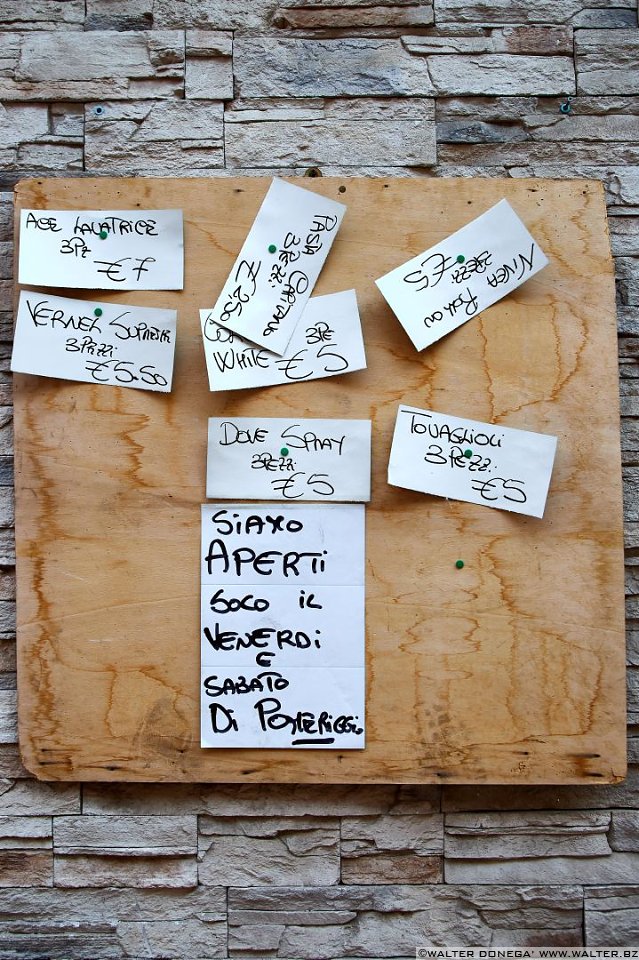 ACE LAVATRICE
3PZ
€7
VERNEL SUPREM
3PEZZI
€5.50
PASTA CAPITANO
3PEZZI
€2.50
WHITE
3PE
€5
NIVEA ROLLON
3PEZZI
€5
DOVE SPRAY
3PEZZI
€5
TOVAGLIOLI
3PEZZI
€5
SIAMO
APERTI
SOLO IL
VENERDI
E
SABATO
DI POMERIGGIO
©WALTER DONEGA' WWW.WALTER.BZ